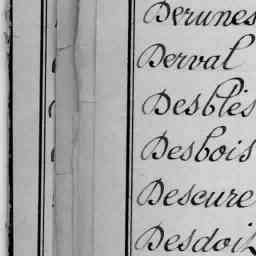 Derunes
Derval
Desblés
Desbois
Descure
Desdoi